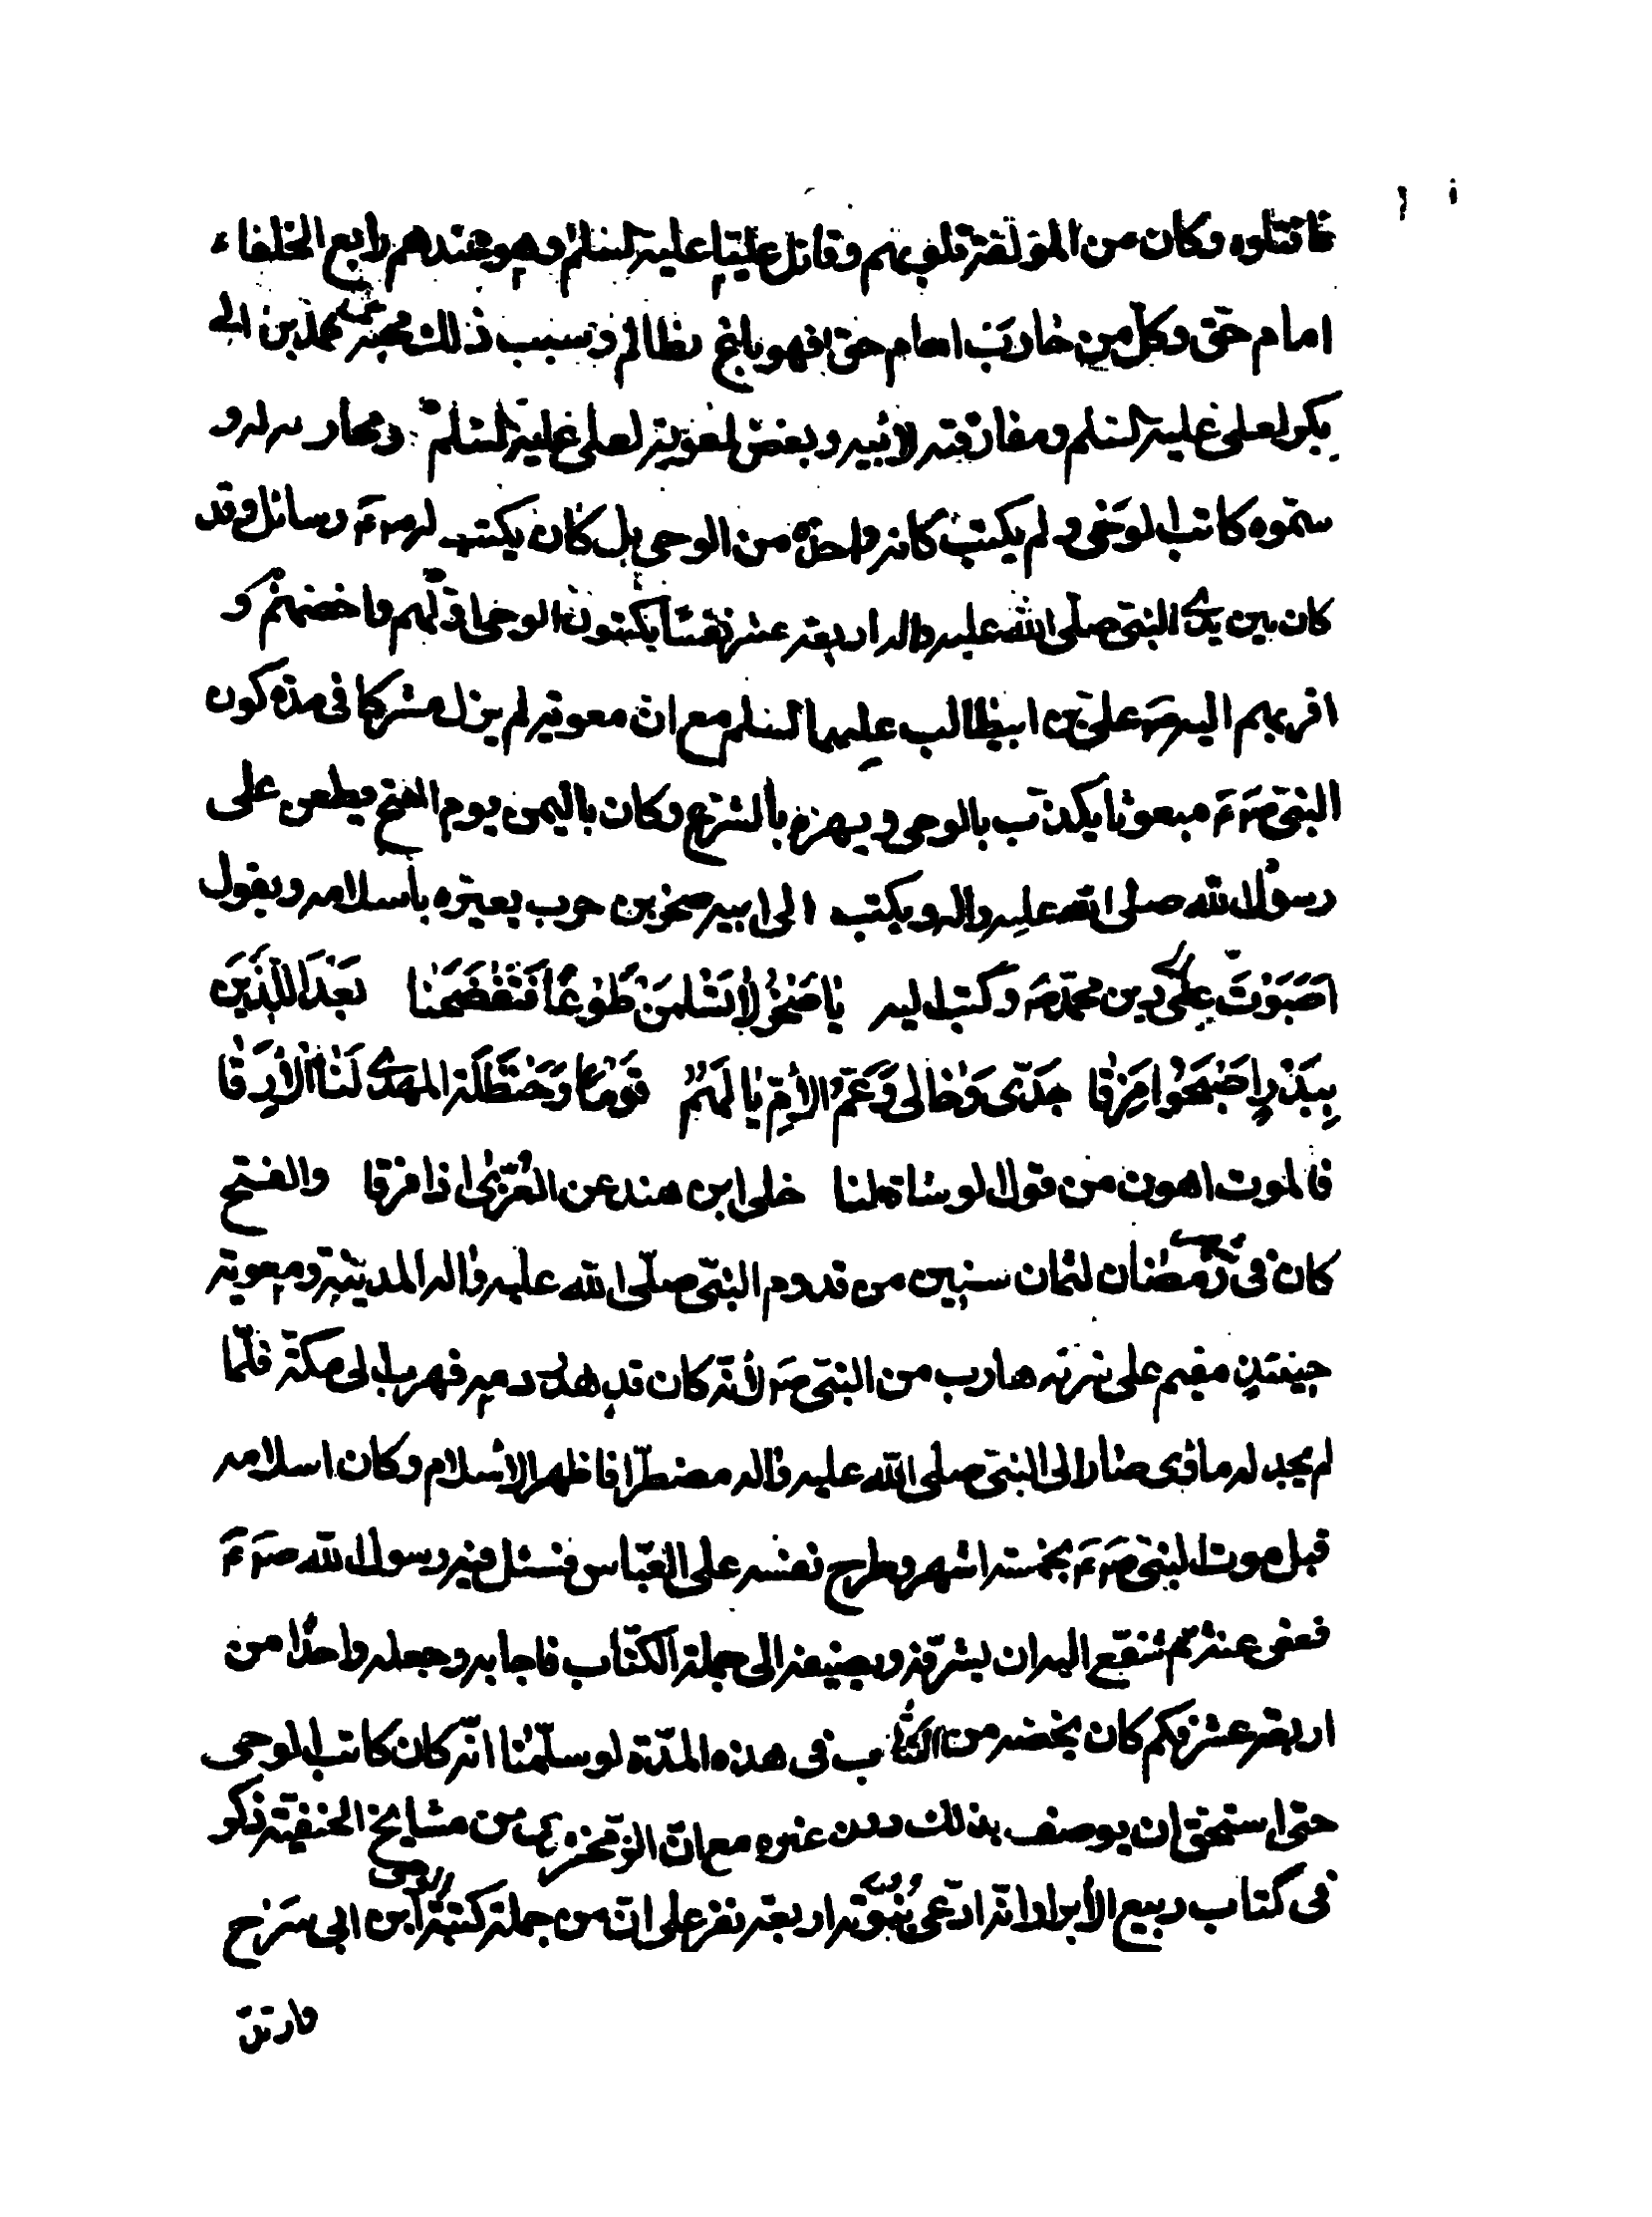 فاقتلوه وكان من المؤلفة قلوبهم وقاتل عليا عليه السلم وهو عندهم رابع الخلفاء
امام حق وكل من حارب امام حق فهو باغ ظالم وسبب ذلك محبة محمد بن ابى
بكر لعلى عليه السلم ومفارقته لابيه وبغض لمعوية لعلى عليه السلم ومحاربته له و
سموه كاتب الوحى و لم يكتب كلمة واحدة من الوحى بل كان يكتب له ص ع رسائل وقد
كان بين يدى النبى صلى الله عليه واله اربعة عشر نفسا يكتبون الوحى اولهم واخصهم و
اقربهم اليه ص على بن ابيطالب عليهما السلم مع ان معوية لم يزل مشركا فى مدة كون
النبى ص ع مبعوثا يكذب بالوحى و يهزء بالشرع وكان باليمن يوم الفتح يطعن على
رسول الله صلى الله عليه واله ويكتب الى ابيه صخر بن حرب يعيره بأسلامه ويقول
اصبوت على دين محمد ص وكتب اليه يا صخر لا تسلمن طوعا فتفضحنا بعد الذين
ببدر اصبحوا مزقا جدى وخالى وعم الام يا لهم قوما وحنظلة المهدى لنا الارقا
فالموت اهون من قول الوشاة لنا خلى ابن هند عن العزى اذا فرقا والفتح
كان فى رمضان لثمان سنين من قدوم النبى صلى الله عليه واله المدينة ومعوية
حينئذ مقيم على شركه هارب من النبى ص لانه كان قد هدر دمه فهرب الى مكة فلما
لم يجد له مأوى صار الى النبى صلى الله عليه واله مضطرا فاظهر الاسلام وكان اسلامه
قبل موت النبى ص ع بخمسة اشهر وطرح نفسه على العباس فسئل فيه رسول الله ص ع
فعفى عنه ثم شفع اليه ان يشرفه ويضيفه الى جملة الكتاب فاجابه وجعله واحدا من
اربعة عشر فكم كان يخصه من الكتاب فى هذه المدة لو سلمنا انه كان كاتب الوحى
حتى استحق ان يوصف بذلك دون غيره مع ان الزمخشرى من مشايخ الحنفية ذكر
فى كتاب ربيع الأبرار انه ادعى بنوته اربعة نفر على ان من جملة كتبة الوحى ابن ابى سرح
وارتد